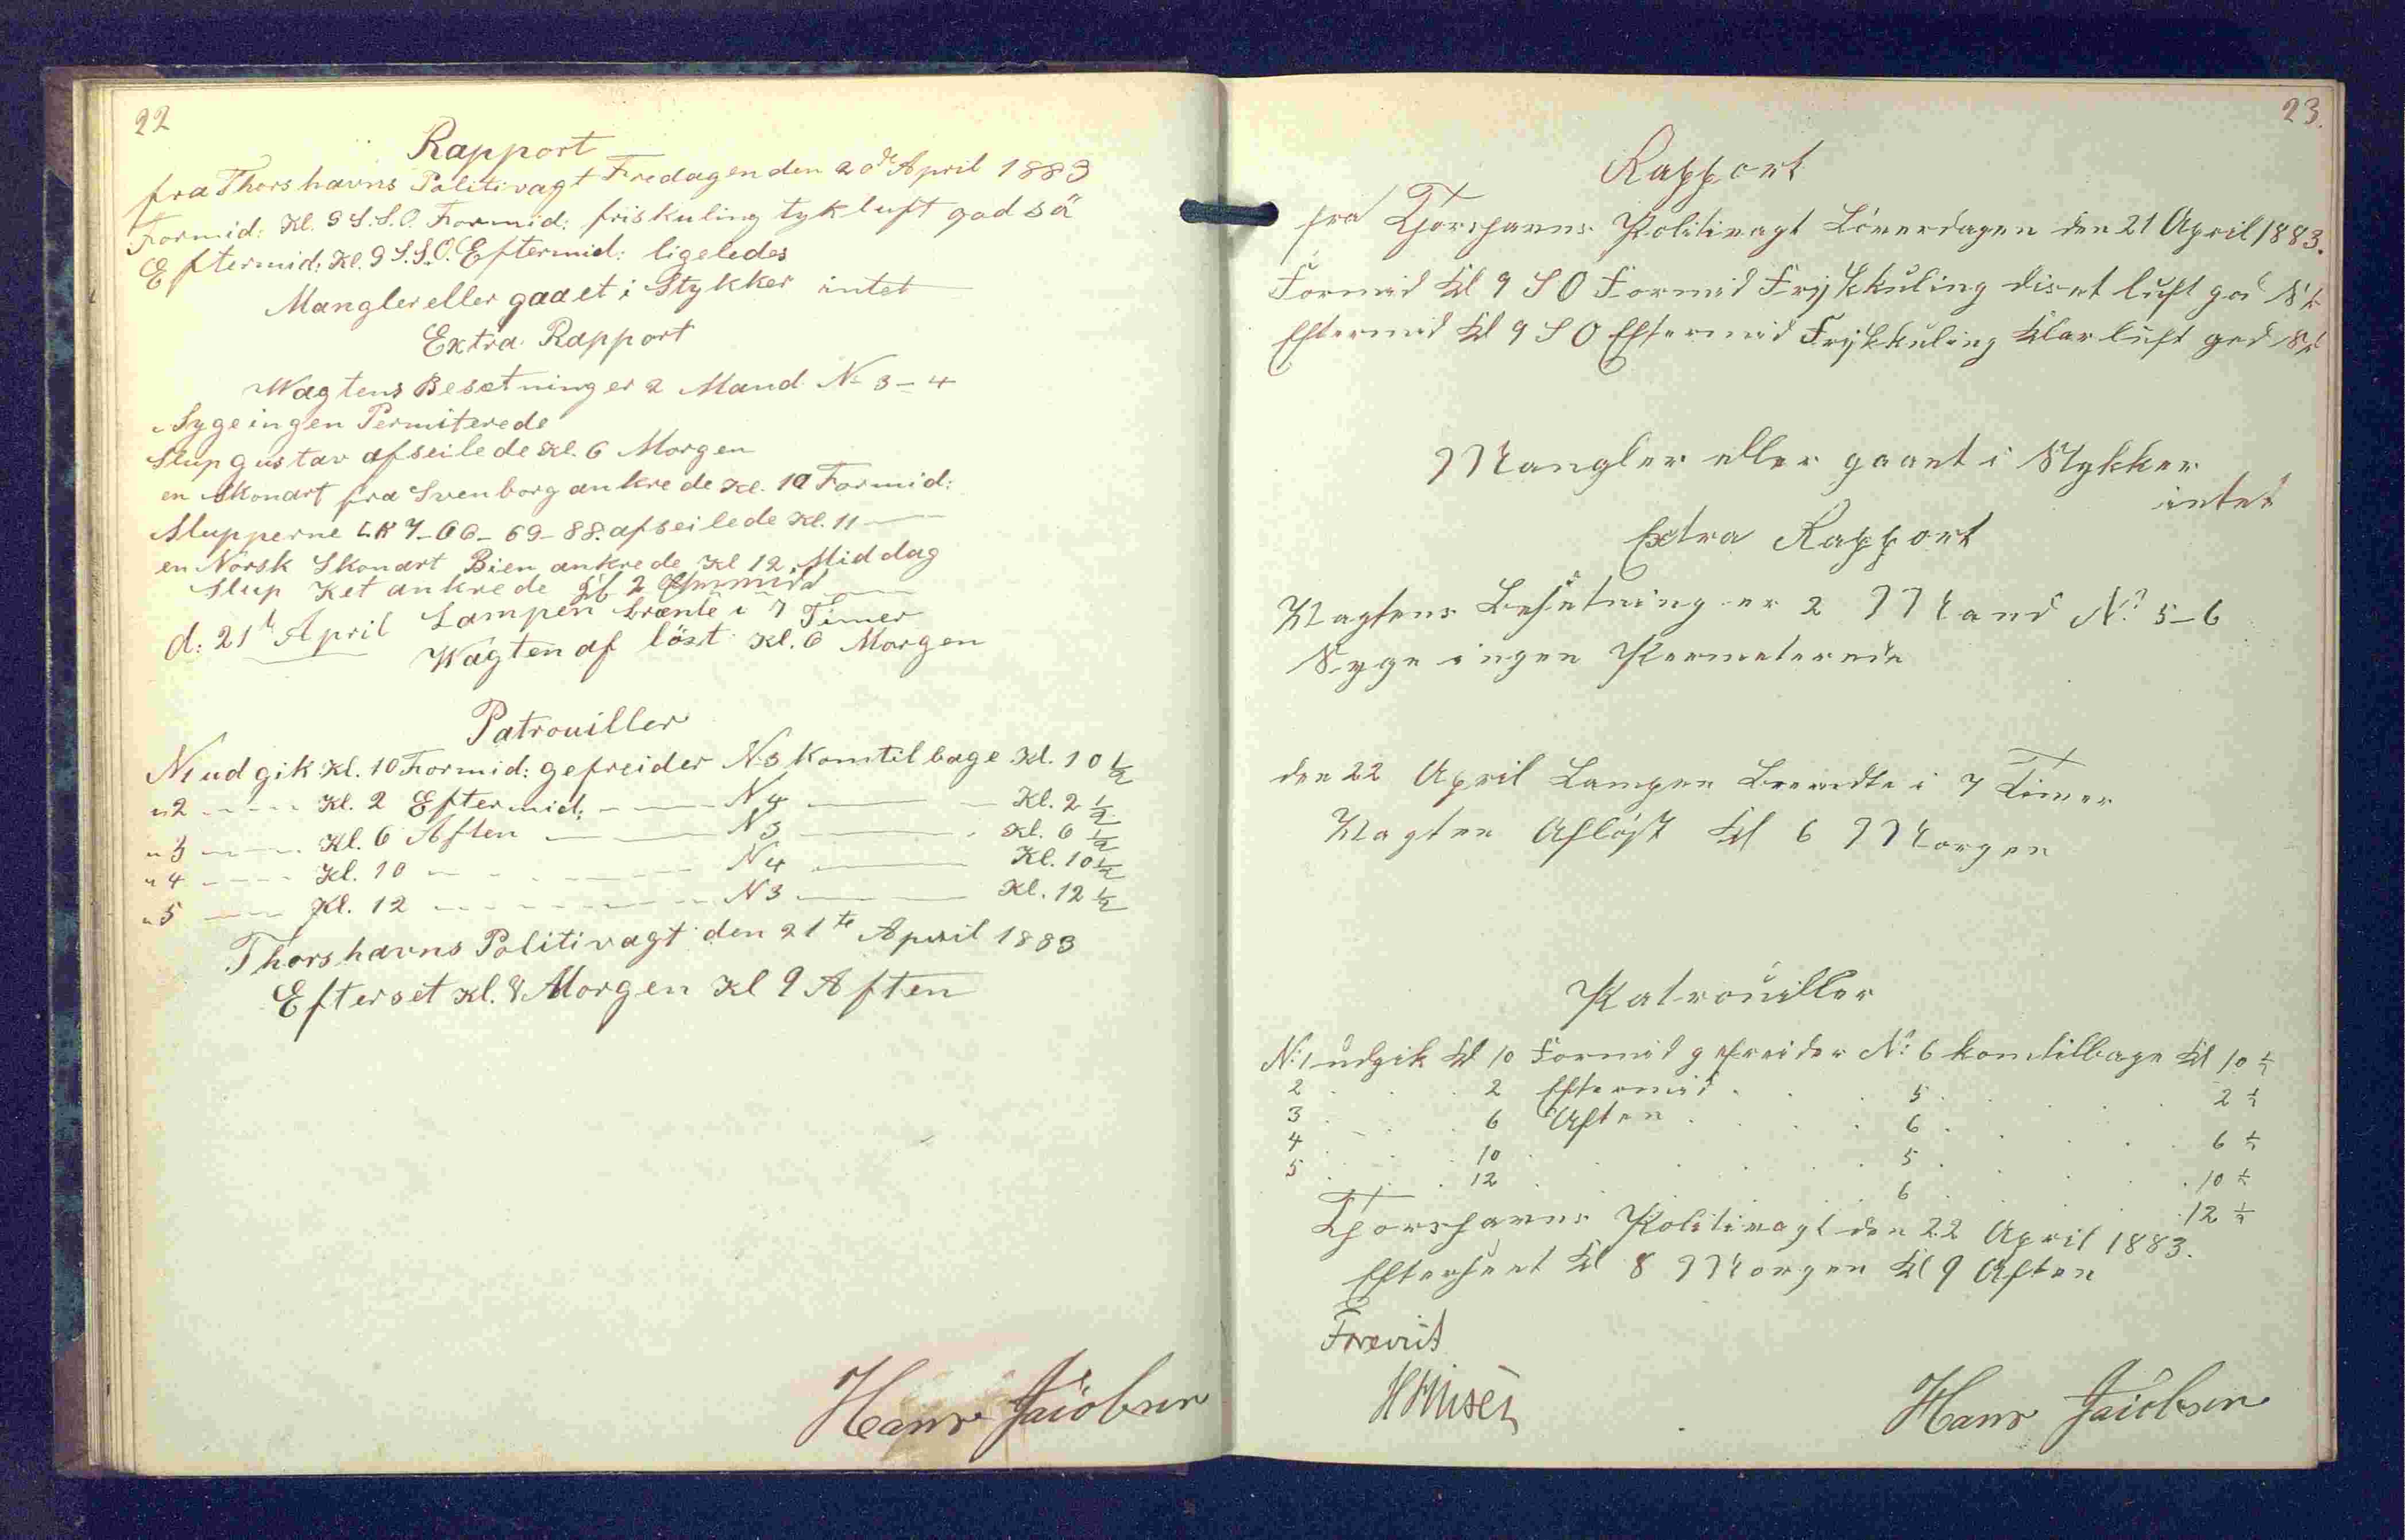 22
Rapport
fra Thorshavns Politivagt Fredagen den 20de April 1883
Formid: Kl. 9 S.S.O. Formid: friskuling tyk luft god sä
Eftermid: Kl. 9 S.S.O. Eftermid: ligeledes
Mangler eller gaaet i Stykker intet
Extra Rapport
Wagtens Besetning er 2 Mand N 3-4
Syge ingen Permiterede
Slup gustav afseilede Kl. 6 Morgen
en Skonart fra Svenborg ankrede Kl. 10 Formid:
Slupperne 7-66-69-88. afseilede Kl. 11
en Norsk Skonart Bien ankrede Kl 12 Middag
Slup Ket ankrede Kl 2 Efermid
d: 21 April Lampen brænte i 7 Timer
Wagten af löst Kl. 6 Morgen
Patrouiller
N1 ud gik Kl. 10 Formid: gefreider N3 kom tilbage Kl. 10 ½
" 2 Kl. 2 Eftermid: N4 Kl. 2 ½
" 3 Kl. 6 Aften N3 Kl. 6 ½
" 4 Kl. 10 N4 Kl. 10 ½
" 5 Kl. 12 N3 Kl. 12 ½
Thorshavns Politivagt den 21te April 1883
Efterset Kl. 8 Morgen Kl 9 Aften
Hans Jacobsen
23.
Rapport
fra Thorshavns Politivagt Löverdagen den 21 April 1883.
Formid Kl 9 S O Formid Friskkuling diset luft god
Eftermid Kl 9 S O Eftermid Friskkuling klar luft god
Mangler eller gaaet i Stykker
intet
Extra Rapport
Wagtens Besetning er 2 Mand No 5-6
Syge ingen Permeterede
den 22 April Lampen Brendte i 7 Timer
Wagten Afløst Kl 6 Morgen
Patrouiller
N: 1 udgik Kl 10 Formid gefreider No 6 kom tilbage Kl 10 ½
2 2 Eftermid 5 2 ½
3 6 Aften 6 6 ½
4 10 5 10 ½
5 12 6 12 ½
Thorshavns Politivagt den 22 April 1883.
Efterseet Kl 8 Morgen Kl 9 Aften
Forevist
Hans Jacobsen